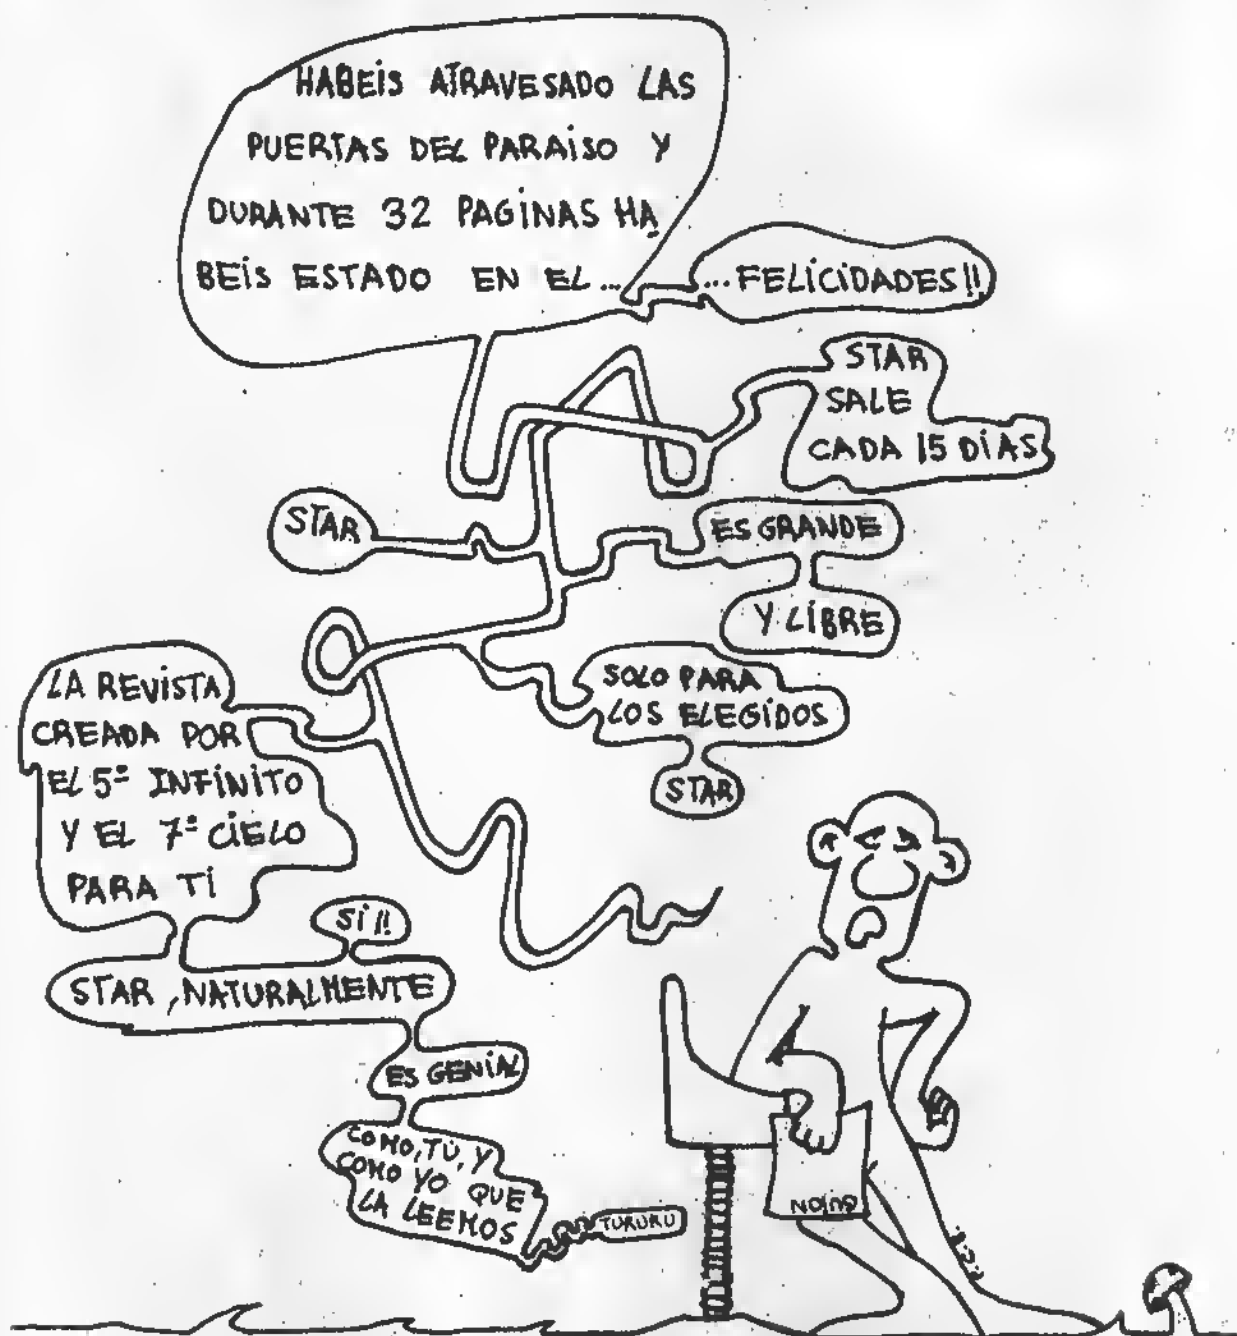 HABEIS ATRAVESADO LAS
PUERTAS DEL PARAISO Y
DURANTE 32 PAGINAS HA
BEIS ESTADO EN EL ...
... FELICIDADES!!
STAR
SALE
CADA 15 DÍAS
STAR
ES GRANDE
Y LIBRE
SOLO PARA
LOS ELEGIDOS
STAR
LA REVISTA
CREADA POR
EL 5º INFINITO
Y EL 7º CIELO
PARA TI
SI!!
STAR, NATURALMENTE
ES GENIAL
COMO, TÚ, Y
COMO YO QUE
LA LEEMOS
TURURU